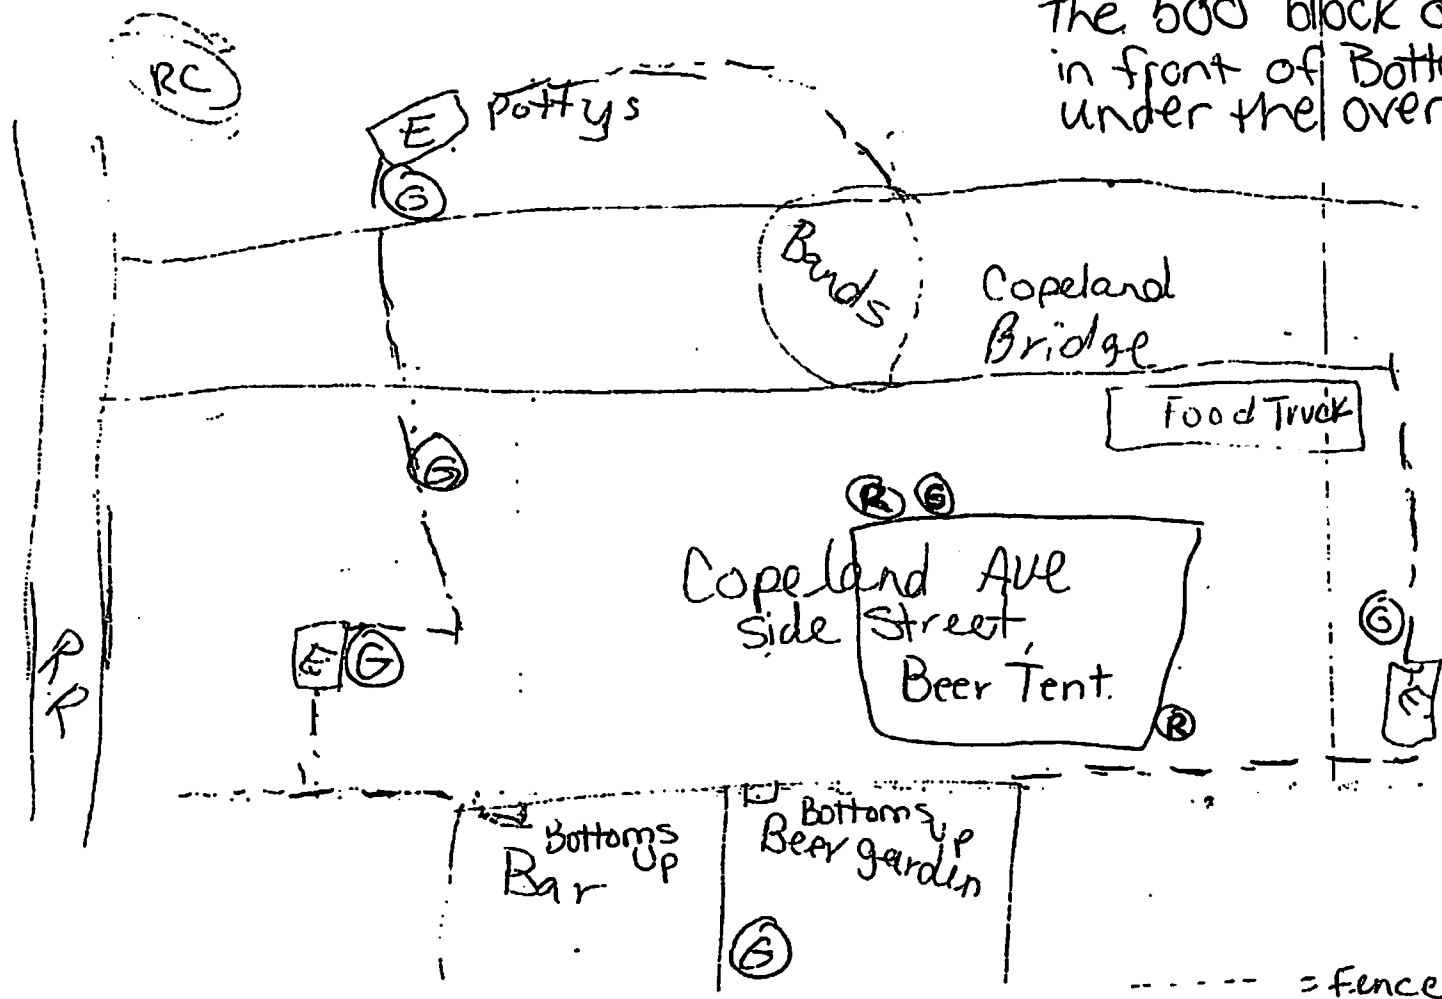 The 500 block o
in front of Bott
under the over
RC
E Pottys
G
Bands
Copeland
Bridge
Food Truck
G
R G
Copeland Ave
side Street,
Beer Tent.
G
E G
E
R
R
R
Bottoms
Up
Bar
Bottoms
Up
Beer garden
G
----- = Fence